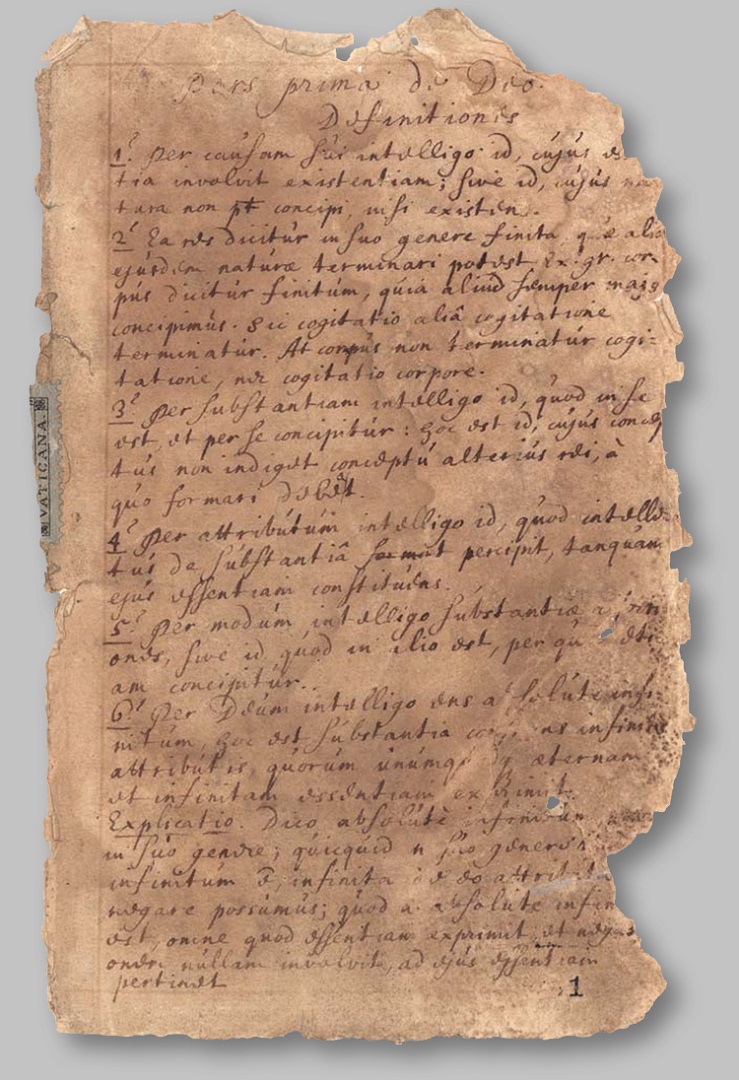 Pars prima de Deo.
Definitiones
1. Per causam sui intelligo id, cujus es
tia involvit existentiam; sive id, cujus na
tura non pt concipi, nisi existens.
2. Ea res dicitur in suo genere finita, quæ aliâ
ejusdem naturæ terminari potest Ex. gr. cor-
pus dicitur finitum, quia aliud semper majus
concipimus. Sic cogitatio aliâ cogitatione
terminatur. At corpus non terminatur cogi=
tatione, nec cogitatio corpore.
3. Per substantiam intelligo id, quod in se
est, et per se concipitur: hoc est id, cujus concep
tus non indiget conceptu alterius rei, à
quo formari debet.
4. Per attributum intelligo id, quod intellec
tus de substantiâ percipit, tanquam
ejus essentiam constituens.
5. Per modum intelligo substantiæ
ones, sive id quod in alio est, per qu eti
am concipitur.
6. Per Deum intelligo ens absolutè infi-
nitum, hoc est substantia ns infinitis
attributis, quorum unumq æternam
et infinitam essentiam exprimit.
Explicatio. Dico absolutè infinitum,
in suo genere; quicquid n suo genere
infinitum ē, infinita de eo attributa
negare possumus; quod a. absolutè infin
est, omne quod essentiam exprimit et nega
onem nullam involvit, ad ejus essentiam
pertinet
1
VATICANA.